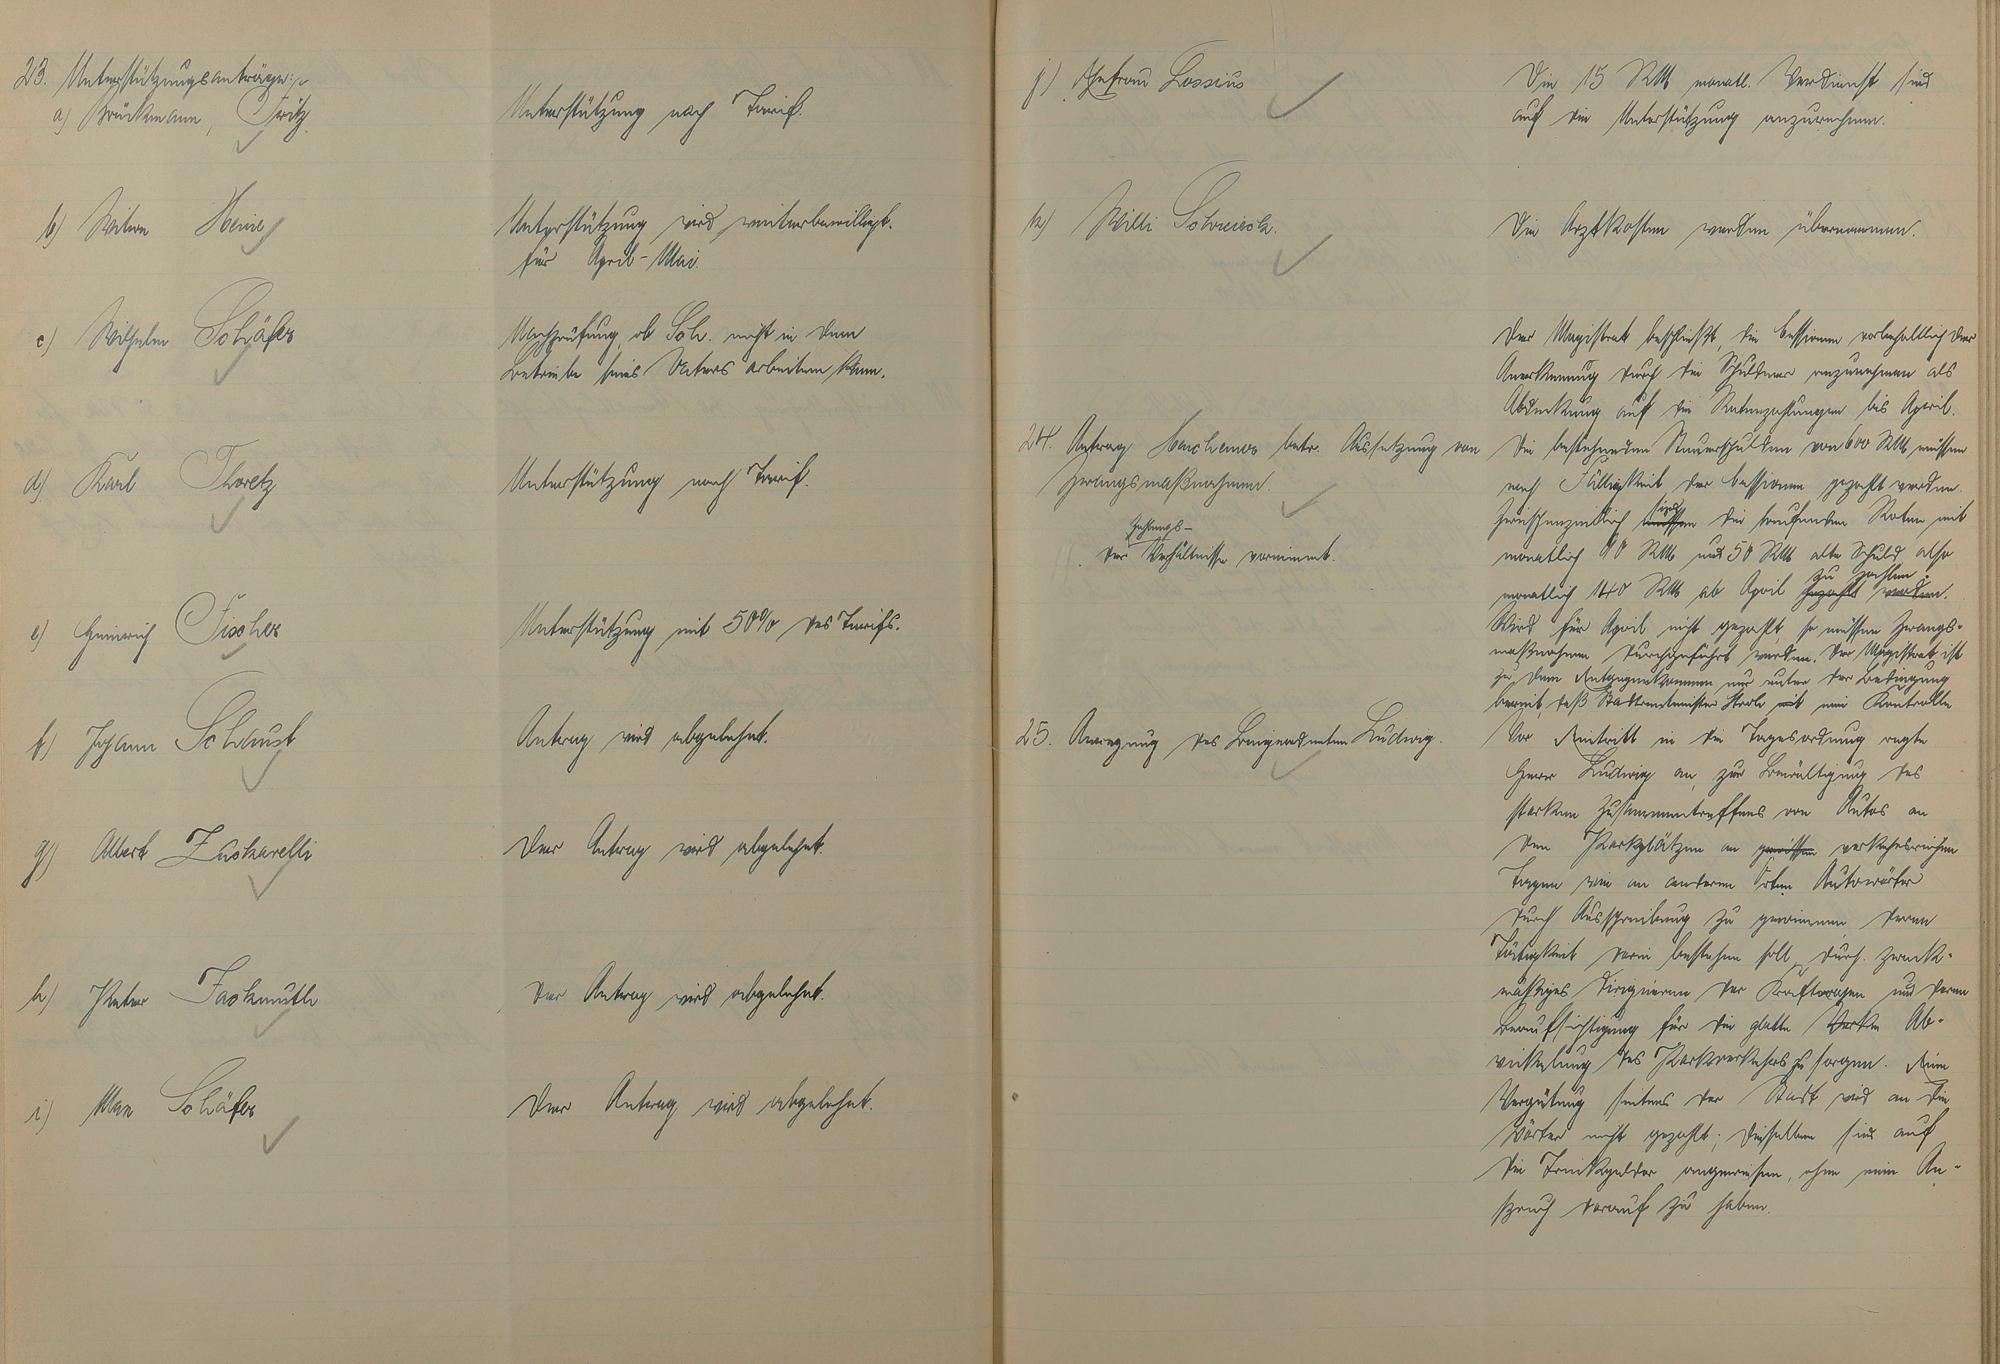 23. Unterstützungsanträge:
a) Brückmann, Fritz
Unterstützung nach Tarif.
b) Witwe Heine
Unterstützung wird weiterbewilligt.
für April-Mai.
c) Wilhelm Schäfer
Nachprüfung, ob Sch. nicht in dem
Betriebe seines Vaters arbeiten kann.
d) Karl Thoretz
Unterstützung nach Tarif.
e) Heinrich Fischer
Unterstützung mit 50% des Tarifs.
f) Johann Schaust
Antrag wird abgelehnt.
g) Albert Zuckarelli
Der Antrag wird abgelehnt.
h) Peter Fackmuth
Der Antrag wird abgelehnt.
i) Max Schäfer
Der Antrag wird abgelehnt.
j) Ehefrau Lossius
Die 15 RM monatl. Verdienst sind
auf die Unterstützung anzurechnen.
k) Willi
Die Arztkosten werden übernommen.
24. Antrag betr. Aussetzung von
Zwangsmaßnahmen.
Der Magistrat beschließt, die Cessionen vorbehaltlich der
Anerkennung durch die Schuldner anzunehmen als
Abdeckung auf die Ratenzahlungen bis April.
Die bestehenden Steuerschulden von 600 RM müssen
nach Fälligkeit der Cessionen gezahlt werden.
Zwischenzeitlich müssen sind die laufenden Raten mit
monatlich 90 RM und 50 RM alte Schuld also
monatlich 140 RM ab April gezahlt werden. zu zahlen.
Wird für April nicht gezahlt, so müssen Zwangs-
maßnahmen durchgeführt werden. Der Magistrat ist
zu dem Entgegenkommen nur unter der Bedingung
bereit, daß Stadtrentmeister mit eine Kontrolle
der Zahlungs-
Verhältnisse vornimmt.
25. Anregung des Beigeordneten Ludwig.
Vor Eintritt in die Tagesordnung regte
Herr Ludwig an, zur Bewältigung des
starken Zusammentreffens von Autos an
den Parkplätzen an gewissen verkehrsreichen
Tagen wie an anderen Orten Autowärter
durch Ausschreibung zu gewinnen, deren
Tätigkeit darin bestehen soll, durch zweck-
mäßiges Dirigieren der Kraftwagen und deren
Beaufsichtigung für die glatte Ab-
wickelung des Parkverkehrs zu sorgen. Eine
Vergütung seitens der Stadt wird an die
Wärter nicht gezahlt; dieselben sind auf
die Trinkgelder angewiesen, ohne einen An-
spruch darauf zu haben.